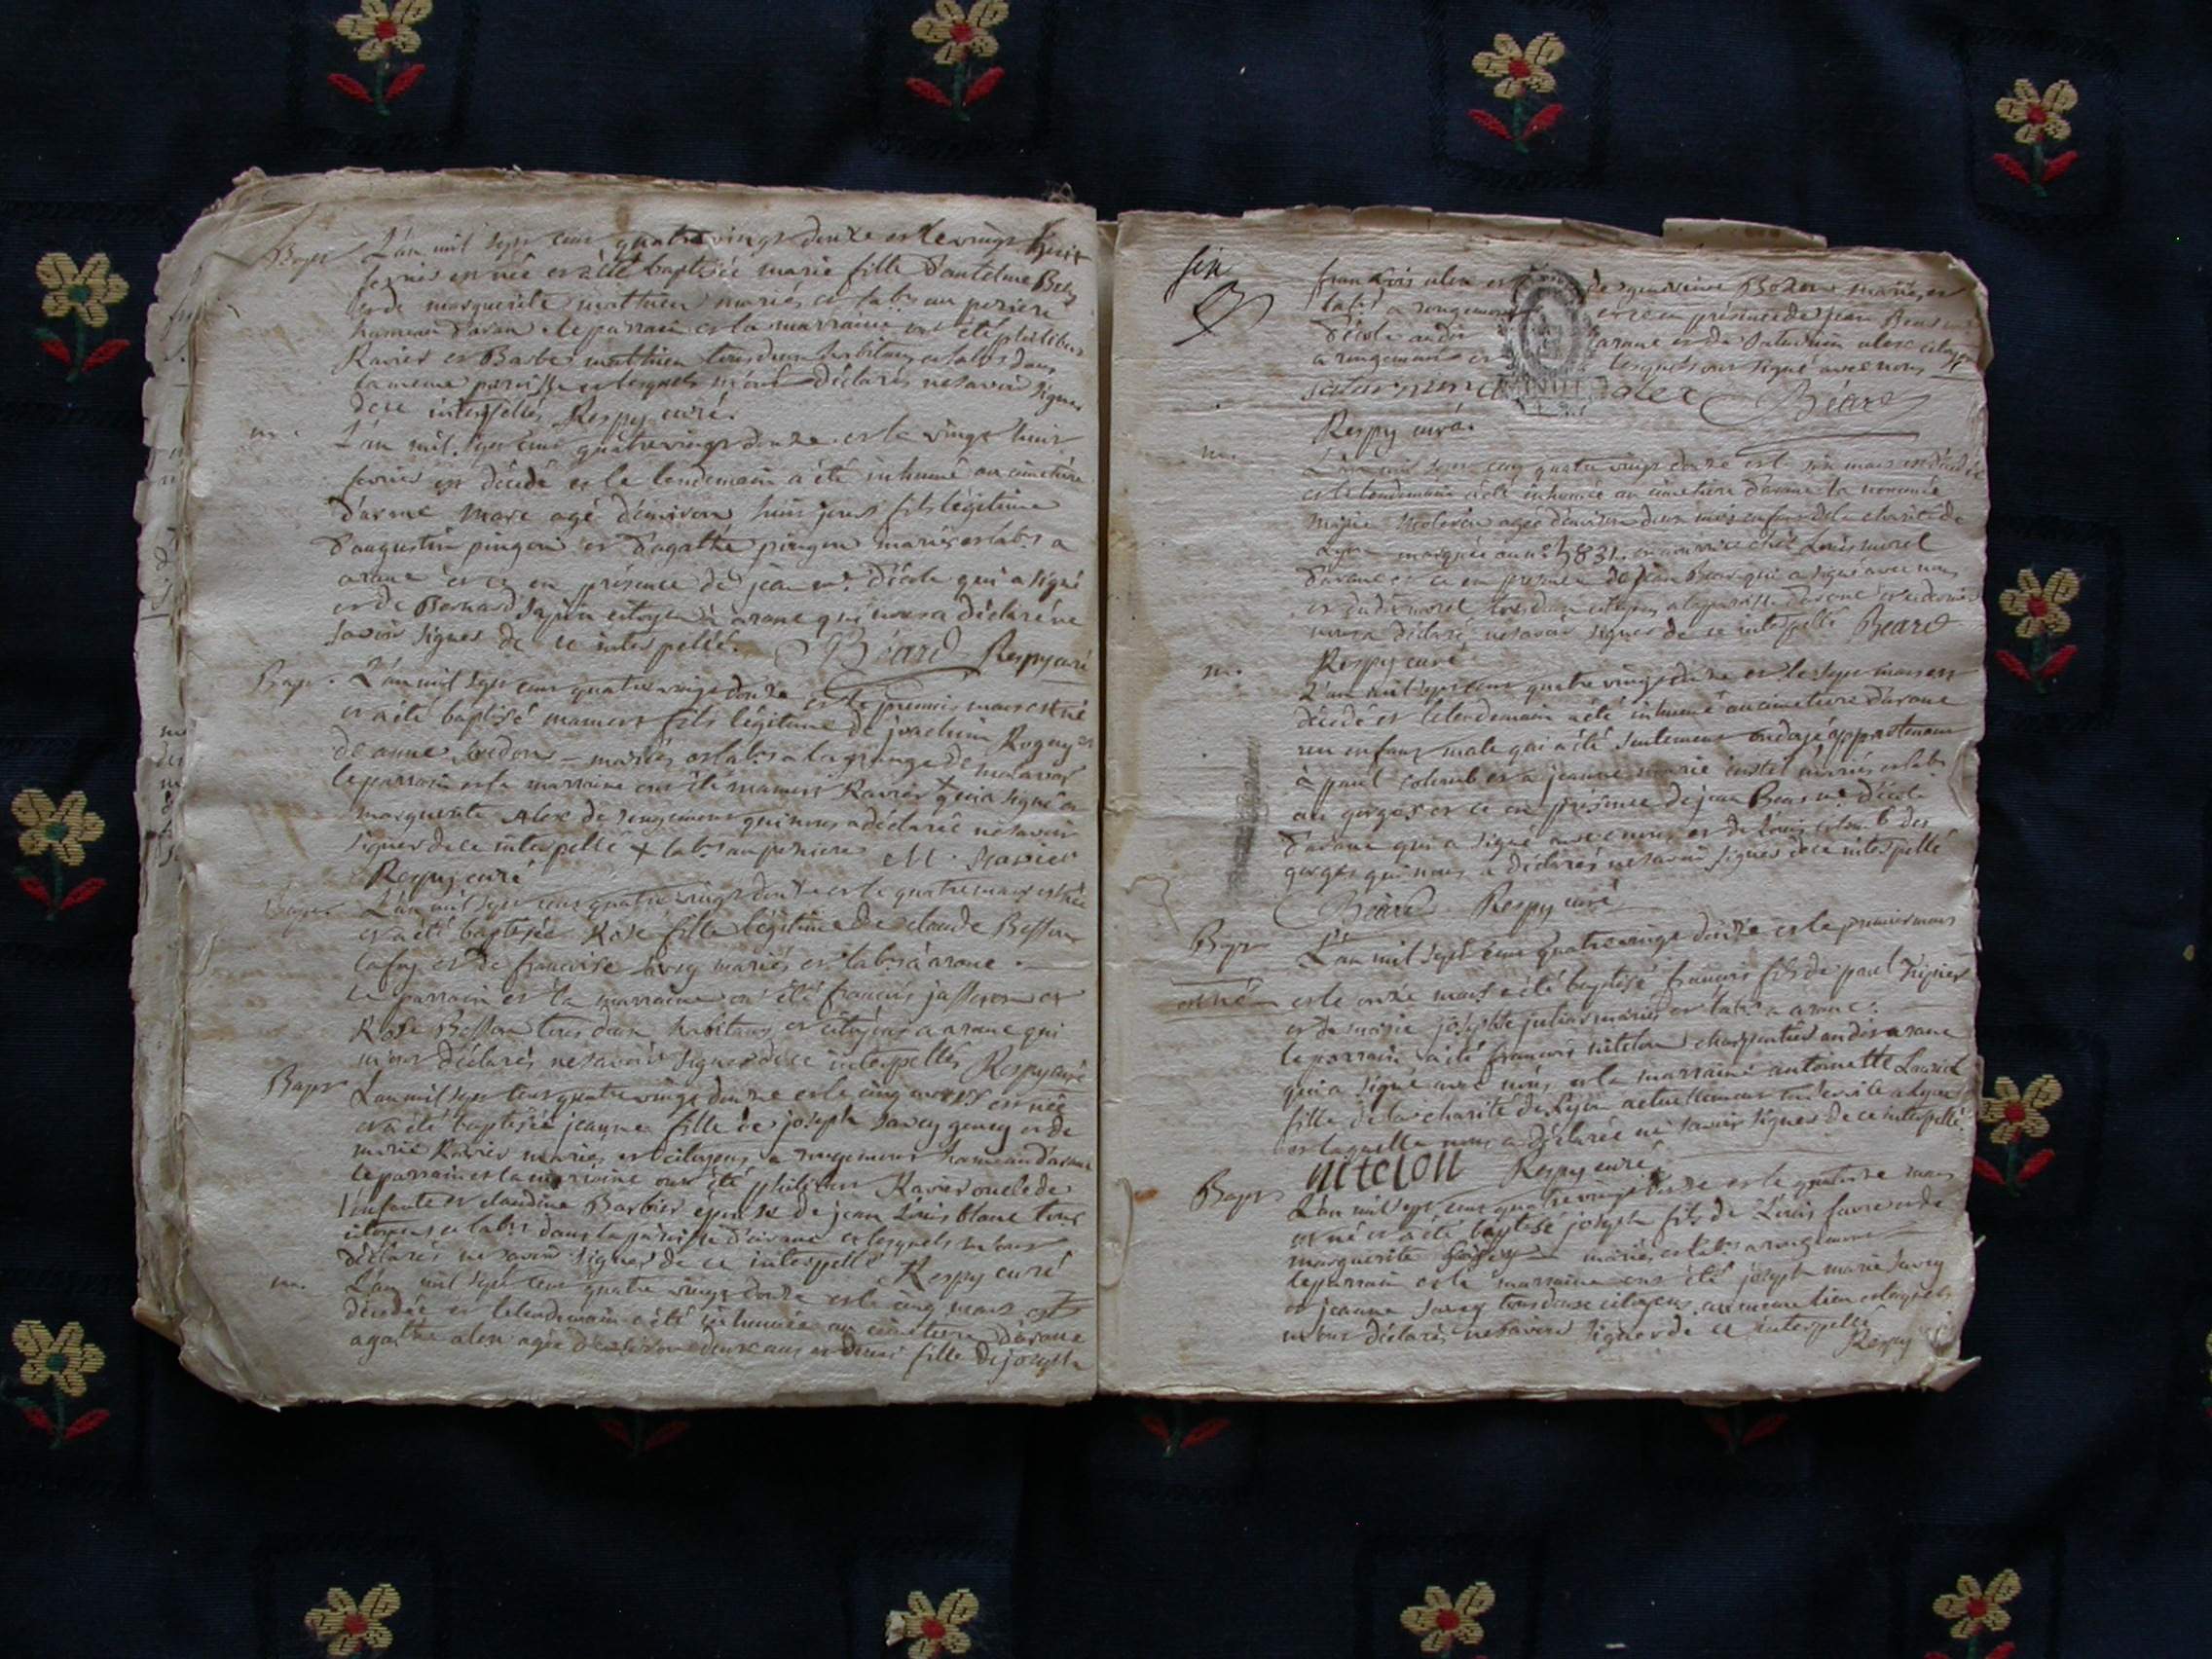 Bapt L'an mil sept cent quatrevingt douze et le vingt huit
fevrier est née et a été baptisée marie fille d'antelme
et de marguerite mathieu mariés et labrs au perieu
hameau d'aran le parrain et la marraine ont été philibert
Ravier et Barbe mathieu tous deux habitans et labrs dans
la meme paroisse et lesquels m'ont déclarés ne savoir signer
de ce interpellés Respy curé.
m. L'an mil sept cent quatrevingt douze et le vingt huit
fevrier est décédé et le lendemain a été inhumé au cimetière
d'arane marc agé d'environ huit jours fils légitime
d'augustin pingon et d'agathe pingon mariés et labrs a
arane et ce en présence de jean d'école qui a signé
et de Bernard Sapin citoyen à arane qui nous a déclaré ne
savoir signer de ce interpellé. Béard Respy curé
Bapt. L'an mil sept cent quatrevingt douze et le premier mars est né
et a été baptisé mamert fils légitime de joachim Rogny et
de anne mariés et labrs a la grange de malaval
le parrain et la marraine ont été mamert Ravier + qui a signé et
marguerite Alex de rougemont qui nous a déclarée ne savoir
signer de ce interpellé + labrs au perieu M. Ravier
Respy curé
Bapt L'an mil sept cent quatrevingt douze et le quatre mars est née
et a été baptisée Rose fille légitime de claude Besson
lafay et de francoise savey mariés et labrs à arane.
le parrain et la marraine ont été francois jasseron et
Rose Besson tous deux habitans et citoyens a arane qui
m'ont déclarés ne savoir signer de ce interpellés Respy curé
Bapt L'an mil sept cent quatrevingt douze et le cinq mars est née
et a été baptisée jeanne fille de joseph savey gency et de
marie Ravier mariés et citoyens a rougemont hameau d'arane
le parrain et la marraine ont été philibert Ravier oncle de
l'enfant et claudine Barbier epouse de jean Louis blanc tous
citoyens et labrs dans la paroisse d'arane et lesquels m'ont
déclarés ne savoir signer de ce interpellé Respy curé
m. L'an mil sept cent quatre vingt douze et le cinq mars est
décédée et le lendemain a été inhumée au cimetière d'arane
agathe alex agée d'environ deux ans et demi fille de joseph
six
francois alex et de genevieve Bozon mariés et
labrs a rougemont et ce en présence de jean Beard
d'école audit arane et de Saturnin alex citoyen
a rougemont et lesquels ont signé avec nous
saturnin alex Béard
Respy curé.
m. L'an mil sept cent quatre vingt douze et le six mars est décédée
et le lendemain a été inhumée au cimetière d'arane la nommée
marie agée d'environ deux mois enfant de la charité de
Lyon marquée au n° 5831. en nourrice chez Louis morel
d'arane et ce en presence de jean Beard qui a signé avec nous
et dudit morel tous deux citoyens a la paroisse d'arane et ce dernier
nous a déclaré ne savoir signer de ce interpellé Beard
Respy curé
m. L'an mil sept cent quatre vingt douze et le sept mars est
décédé et le lendemain a été inhumé au cimetiere d'arane
un enfant male qui a été seulement ondoyé appartenant
à paul colomb et a jeanne marie mariés et labrs
au gorges et ce en présence de jean Beard d'école
d'arane qui a signé avec nous et de Louis colomb des
gorges qui nous a déclaré ne savoir signer de ce interpellé
Béard Respy curé
Bapt L'an mil sept cent quatrevingt douze et le premier mars
est né et le onze mars a été baptisé francois fils de paul
et de marie josephte juliard mariés et labrs a arane.
le parrain a été francois nitelon charpentier audit arane
qui a signé avec nous et la marraine antoinette
fille de la charité de Lyon actuellement en service a Lyon
et laquelle nous a déclarée ne savoir signer de ce interpellé.
nitelon Respy curé.
Bapt L'an mil sept cent quatrevingt douze et le quatorze mars
est né et a été baptisé joseph fils de Louis favre et de
marguerite mariés et labrs a rougemont
le parrain et la marraine ont été joseph marie savey
et jeanne savey tous deux citoyens au meme lieu et lesquels
m'ont déclarés ne savoir signer de ce interpellé
Respy